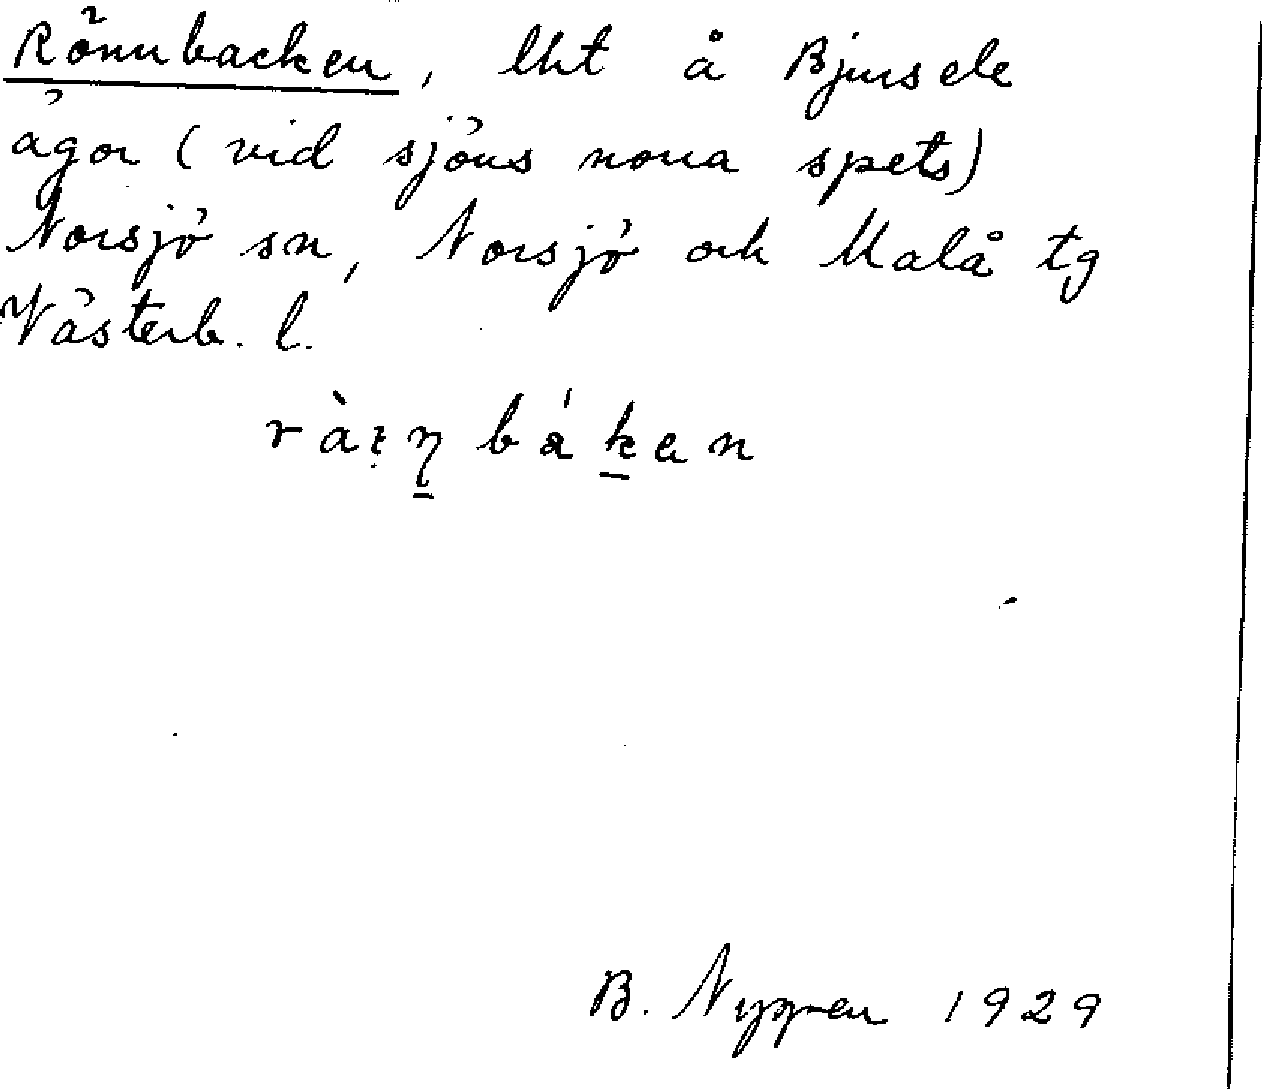 Rönnbacken, lht å Bjursele
ägor (vid sjöns norra spets)
Norsjö sn, Norsjö och Malå tg
Västerb. l.
B. Nygren 1929